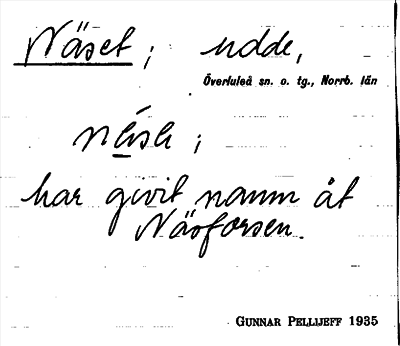 Näset; udde,
Överluleå sn. o. tg., Norrb. län
har givit namn åt
Näsforsen.
GUNNAR PELLIJEFF 1935